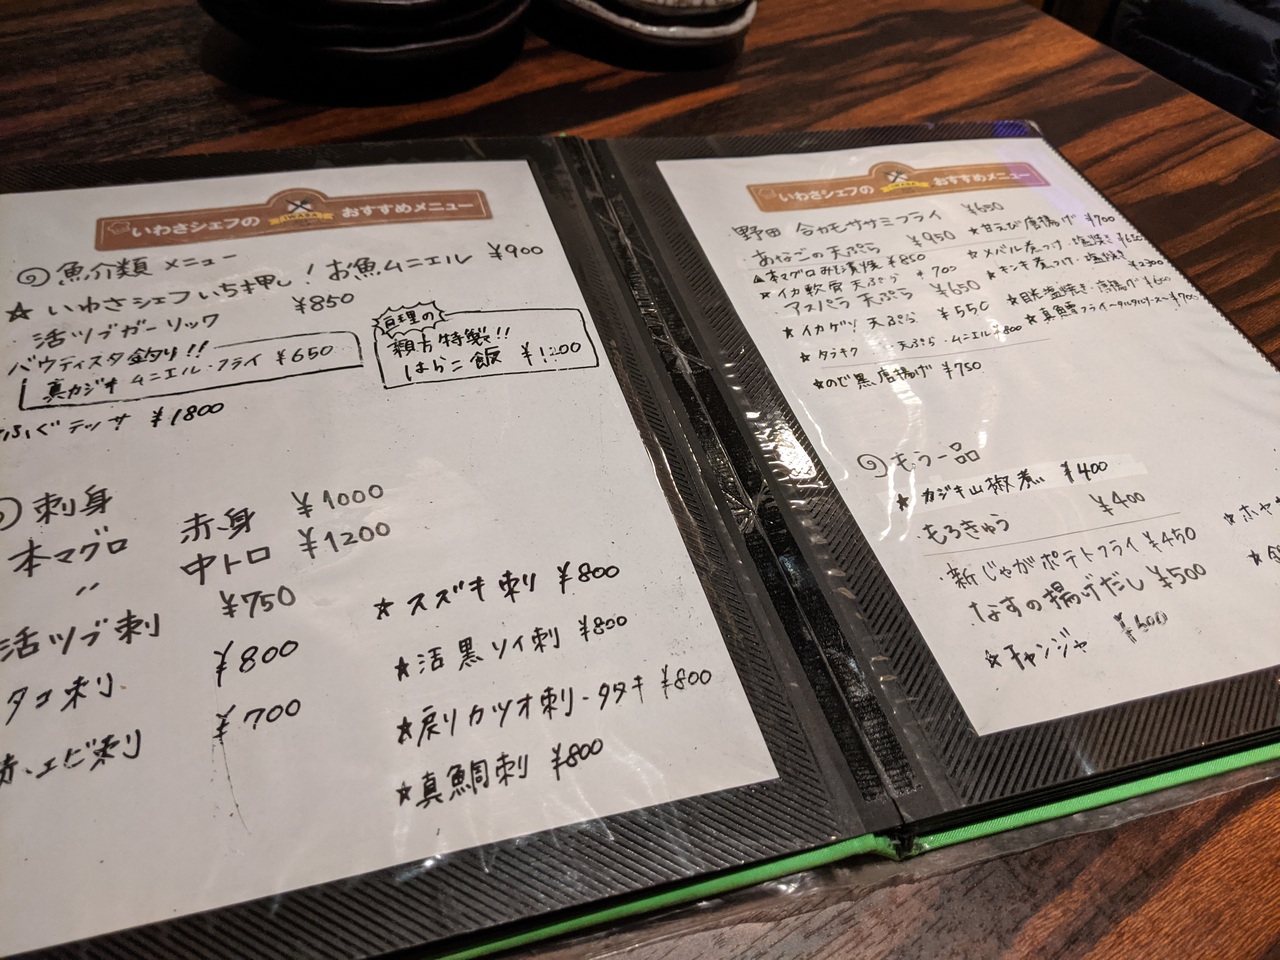 いわさシェフの IWASA おすすめメニュー
魚介類 メニュー
☆ いわさシェフいち押し! お魚ムニエル ¥900
活ツブガーリック ¥850
バウティスタ釣り!!
真カジキ ムニエル・フライ ¥650
親方特製!!
はらこ飯 ¥1200
ふぐテッサ ¥1800
刺身
本マグロ 赤身 ¥1000
〃 中トロ ¥1200
活ツブ刺 ¥750
タコ刺 ¥800
赤エビ刺 ¥700
☆ スズキ刺 ¥800
★ 活黒ソイ刺 ¥800
★ 戻りカツオ刺・タタキ ¥800
★ 真鯛刺 ¥800
いわさシェフの IWASA おすすめメニュー
野田 合カモササミフライ ¥650
・あなごの天ぷら ¥950
本マグロ ¥850
★ イカ軟骨天ぷら ¥700
・アスパラ天ぷら ¥650
★ イカゲソ天ぷら ¥550
★ タラキク 天ぷら・ムニエル ¥800
★ のど黒唐揚げ ¥750
★ 甘えび唐揚げ ¥700
★ メバル煮つけ・塩焼き
★ キンキ煮つけ・塩焼き ¥2300
★ 目光塩焼き・唐揚げ ¥600
もう一品
★ カジキ山椒煮 ¥400
・もろきゅう ¥400
・新じゃがポテトフライ ¥450
なすの揚げだし ¥500
☆ チャンジャ
☆ ホヤ